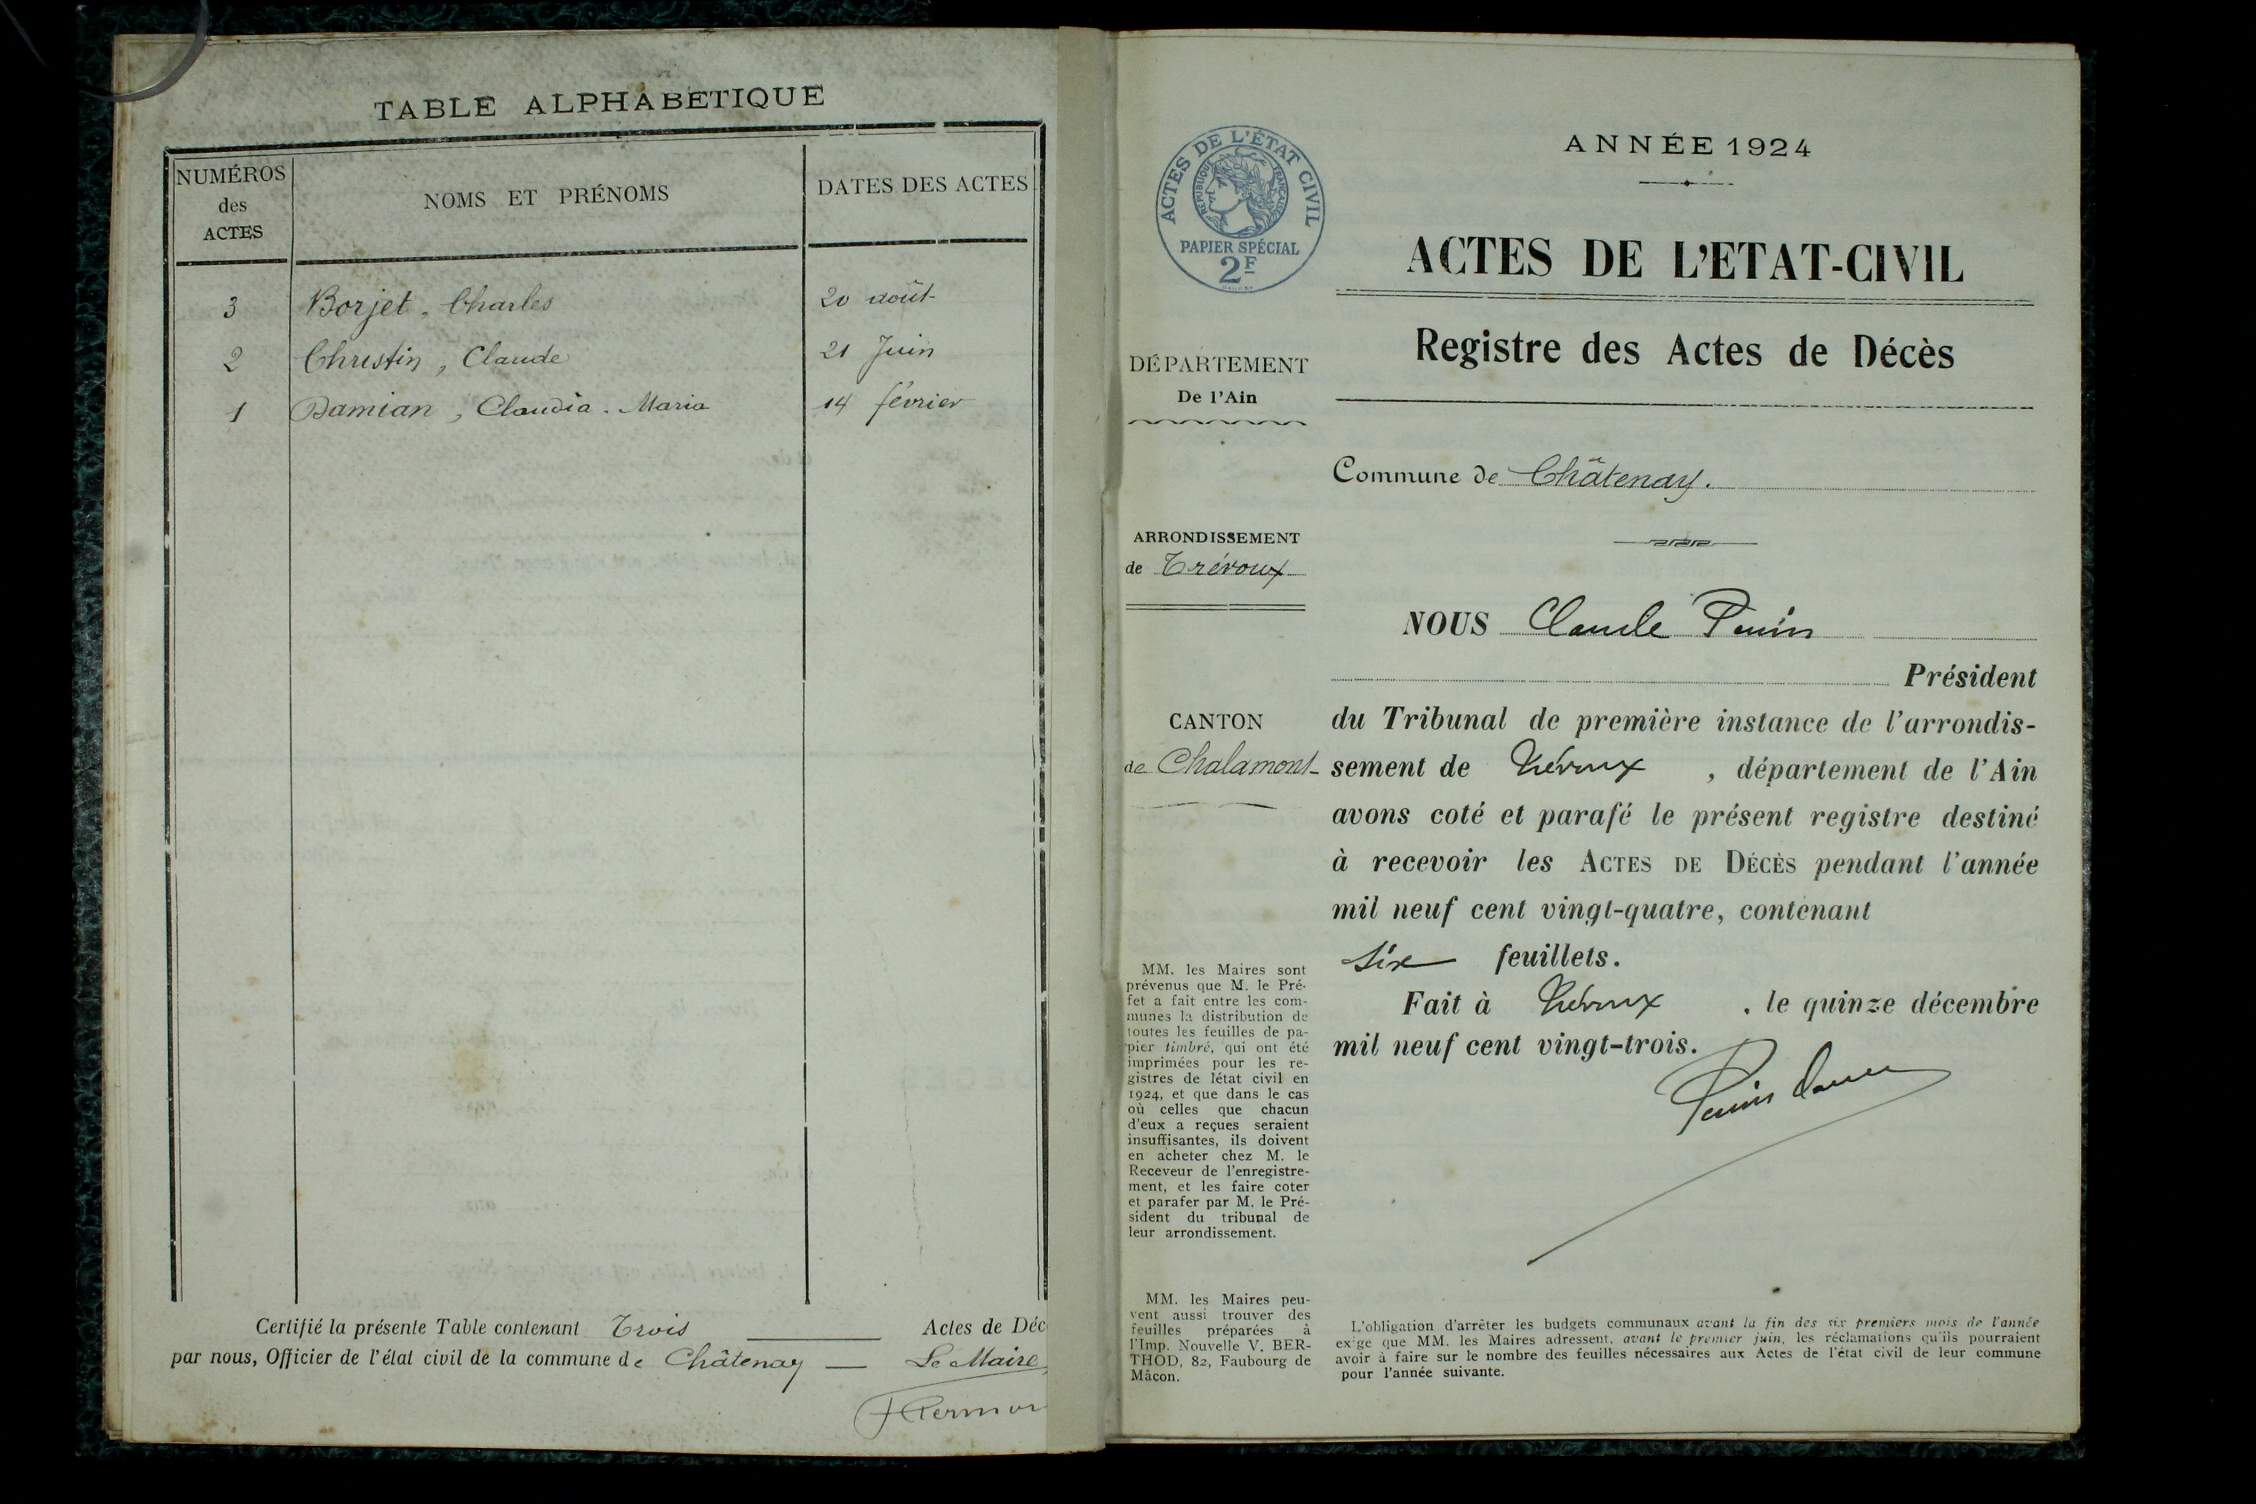 TABLE ALPHABETIQUE
NUMÉROS
des
ACTES
NOMS ET PRÉNOMS
DATES DES ACTES
3 Borjet, Charles 20 août
2 Christin, Claude 21 Juin
1 Damian, Claudia-Maria 14 février
Certifié la présente Table contenant Trois Actes de Déc
par nous, Officier de l'état civil de la commune de Châtenay Le Maire
ACTES DE L'ÉTAT CIVIL
RÉPUBLIQUE FRANÇAISE
PAPIER SPÉCIAL
2F
DÉPARTEMENT
De l'Ain
ARRONDISSEMENT
de Trévoux
CANTON
de Chalamont
MM. les Maires sont
prévenus que M. le Pré-
fet a fait entre les com-
munes la distribution de
toutes les feuilles de pa-
pier timbré, qui ont été
imprimées pour les re-
gistres de létat civil en
1924, et que dans le cas
où celles que chacun
d'eux a reçues seraient
insuffisantes, ils doivent
en acheter chez M. le
Receveur de l'enregistre-
ment, et les faire coter
et parafer par M. le Pré-
sident du tribunal de
leur arrondissement.
MM. les Maires peu-
vent aussi trouver des
feuilles préparées à
l'Imp. Nouvelle V. BER-
THOD, 82, Faubourg de
Mâcon.
ANNÉE 1924
ACTES DE L'ETAT-CIVIL
Registre des Actes de Décès
Commune de Châtenay.
NOUS Claude
Président
du Tribunal de première instance de l'arrondis-
sement de Trévoux, département de l'Ain
avons coté et parafé le présent registre destiné
à recevoir les ACTES DE DÉCÈS pendant l'année
mil neuf cent vingt-quatre, contenant
six feuillets.
Fait à Trévoux, le quinze décembre
mil neuf cent vingt-trois.
L'obligation d'arrêter les budgets communaux avant la fin des six premiers mois de l'année
exige que MM. les Maires adressent, avant le premier juin, les réclamations qu'ils pourraient
avoir à faire sur le nombre des feuilles nécessaires aux Actes de l'état civil de leur commune
pour l'année suivante.